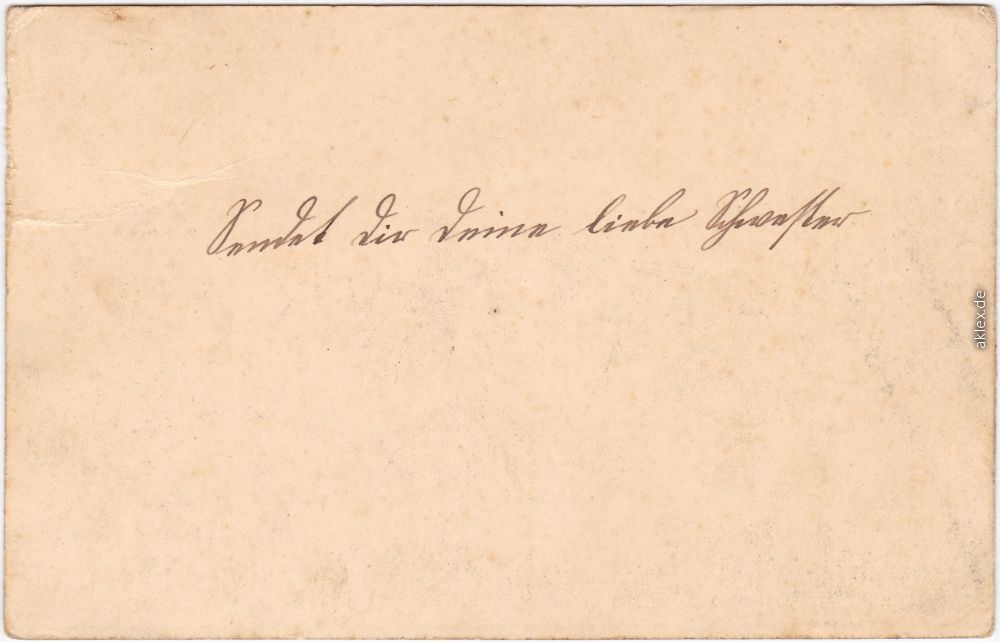 Sendet dir deine liebe Schwester
aklex.de